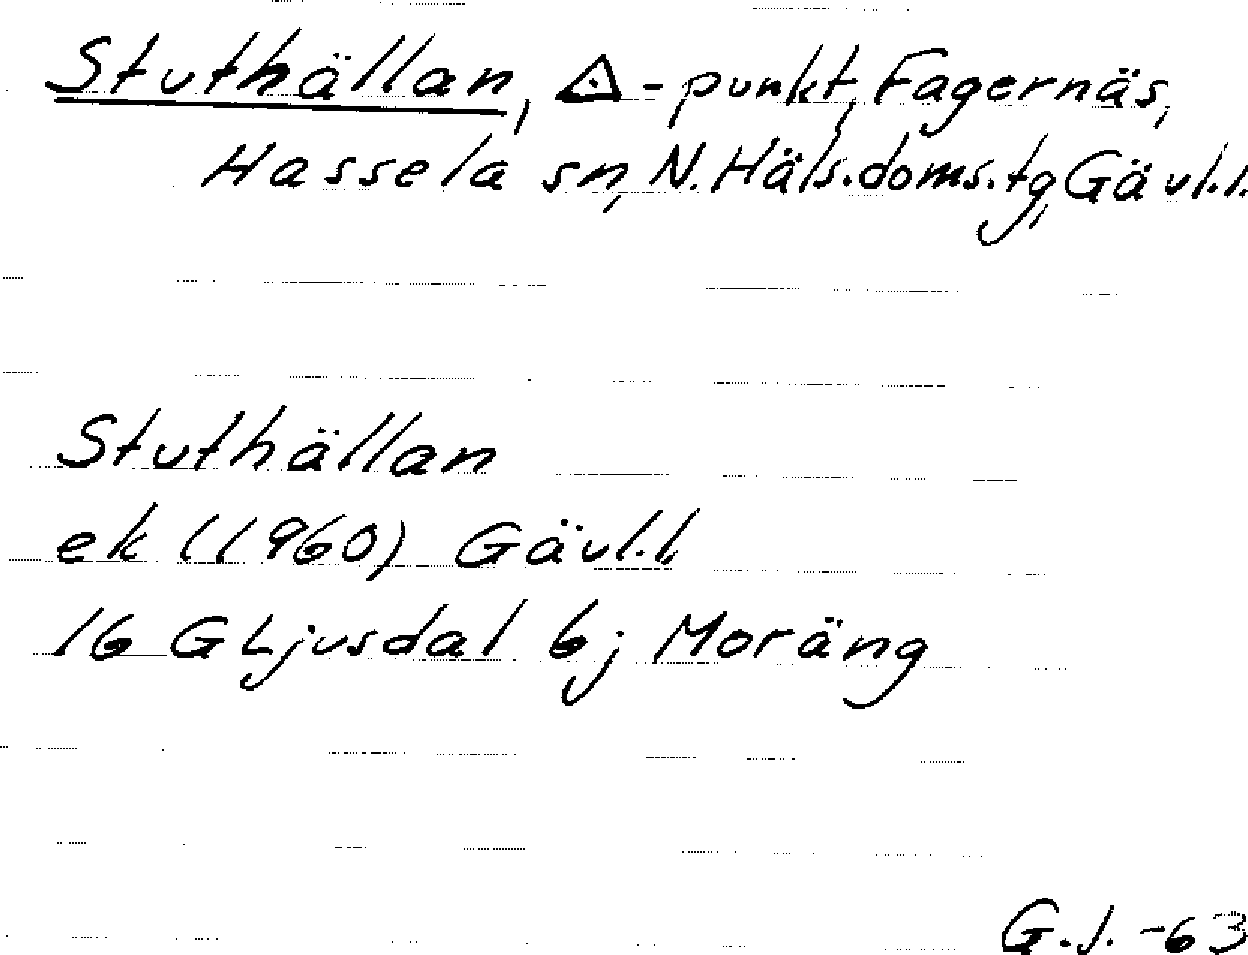 Stuthällan, △-punkt, Fagernäs,
Hassela sn, N. Häls. doms. tg, Gävl. l.
Stuthällan
ek (1960) Gävl. l.
16 G Ljusdal 6j Moräng
G.J. -63